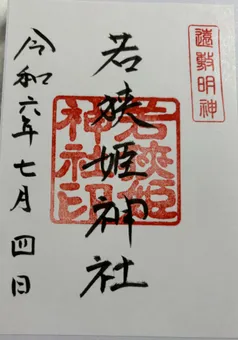 遠敷明神
若狹姫神社
若狹姫神社印
令和六年七月四日